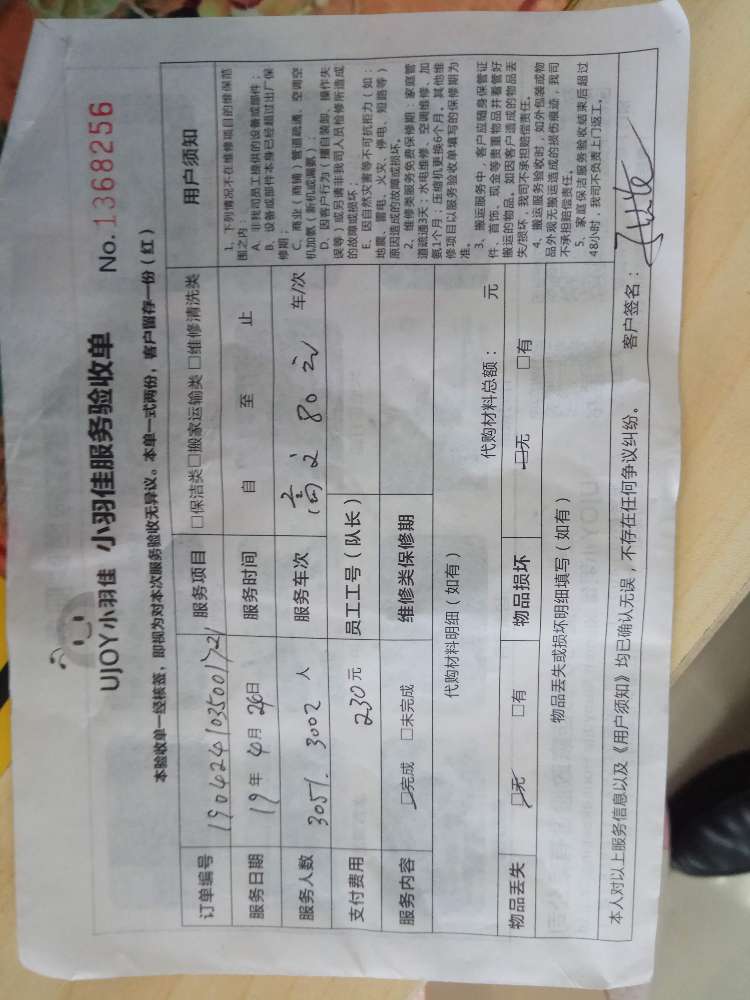 UJOY小羽佳 小羽佳服务验收单 No. 1368256
本验收单一经核签，即视为对本次服务验收无异议。本单一式两份，客户留存一份（红）
订单编号 190424103500172 服务项目 □保洁类□搬家运输类 □维修清洗类
服务日期 19 年 4 月 26 日 服务时间 自 至 止
服务人数 3051. 3002 人 服务车次 80 元 车/次
支付费用 230 元 员工工号（队长）
服务内容 □完成 □未完成 维修类保修期
代购材料明细（如有）
代购材料总额： 元
物品丢失 □无 □有 物品损坏 □无 □有
物品丢失或损坏明细填写（如有）
用户须知
1、下列情况不在维修项目的维保范
围之内：
A、非我司员工提供的设备或部件；
B、设备或部件本身已经超过出厂保
修期；
C、商业（商铺）管道疏通、空调空
机加氨（新机或漏氨）；
D、因客户行为（擅自装卸、操作失
误等）或另请非我司人员检修所造成
的故障或损坏；
E、因自然灾害等不可抗拒力（如：
地震、雷电、火灾、停电、短路等）
原因造成的故障或损坏。
2、维修类服务免费保修期：家庭管
道疏通3天；水电维修、空调维修、加
氨1个月；压缩机更换6个月。其他维
修项目以服务验收单填写的保修期为
准。
3、搬运服务中，客户应随身保管证
件、首饰、现金等贵重物品并看管好
搬运的物品。如因客户造成的物品丢
失/损坏，我司不承担赔偿责任。
4、搬运服务验收时，如外包装或物
品外观无搬运造成的损伤痕迹，我司
不承担赔偿责任。
5、家庭保洁服务验收结束后超过
48小时，我司不负责上门返工。
本人对以上服务信息以及《用户须知》均已确认无误，不存在任何争议纠纷。 客户签名：